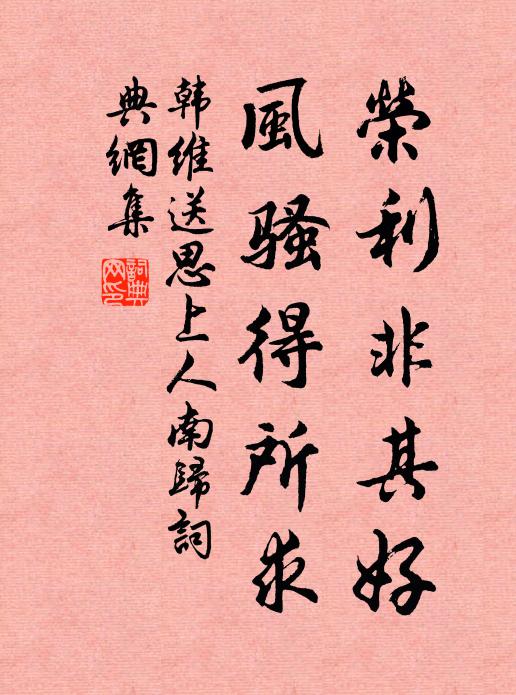 榮利非其好
風騷得所求
韩維送思上人南歸詞
典網集
詞典
网印